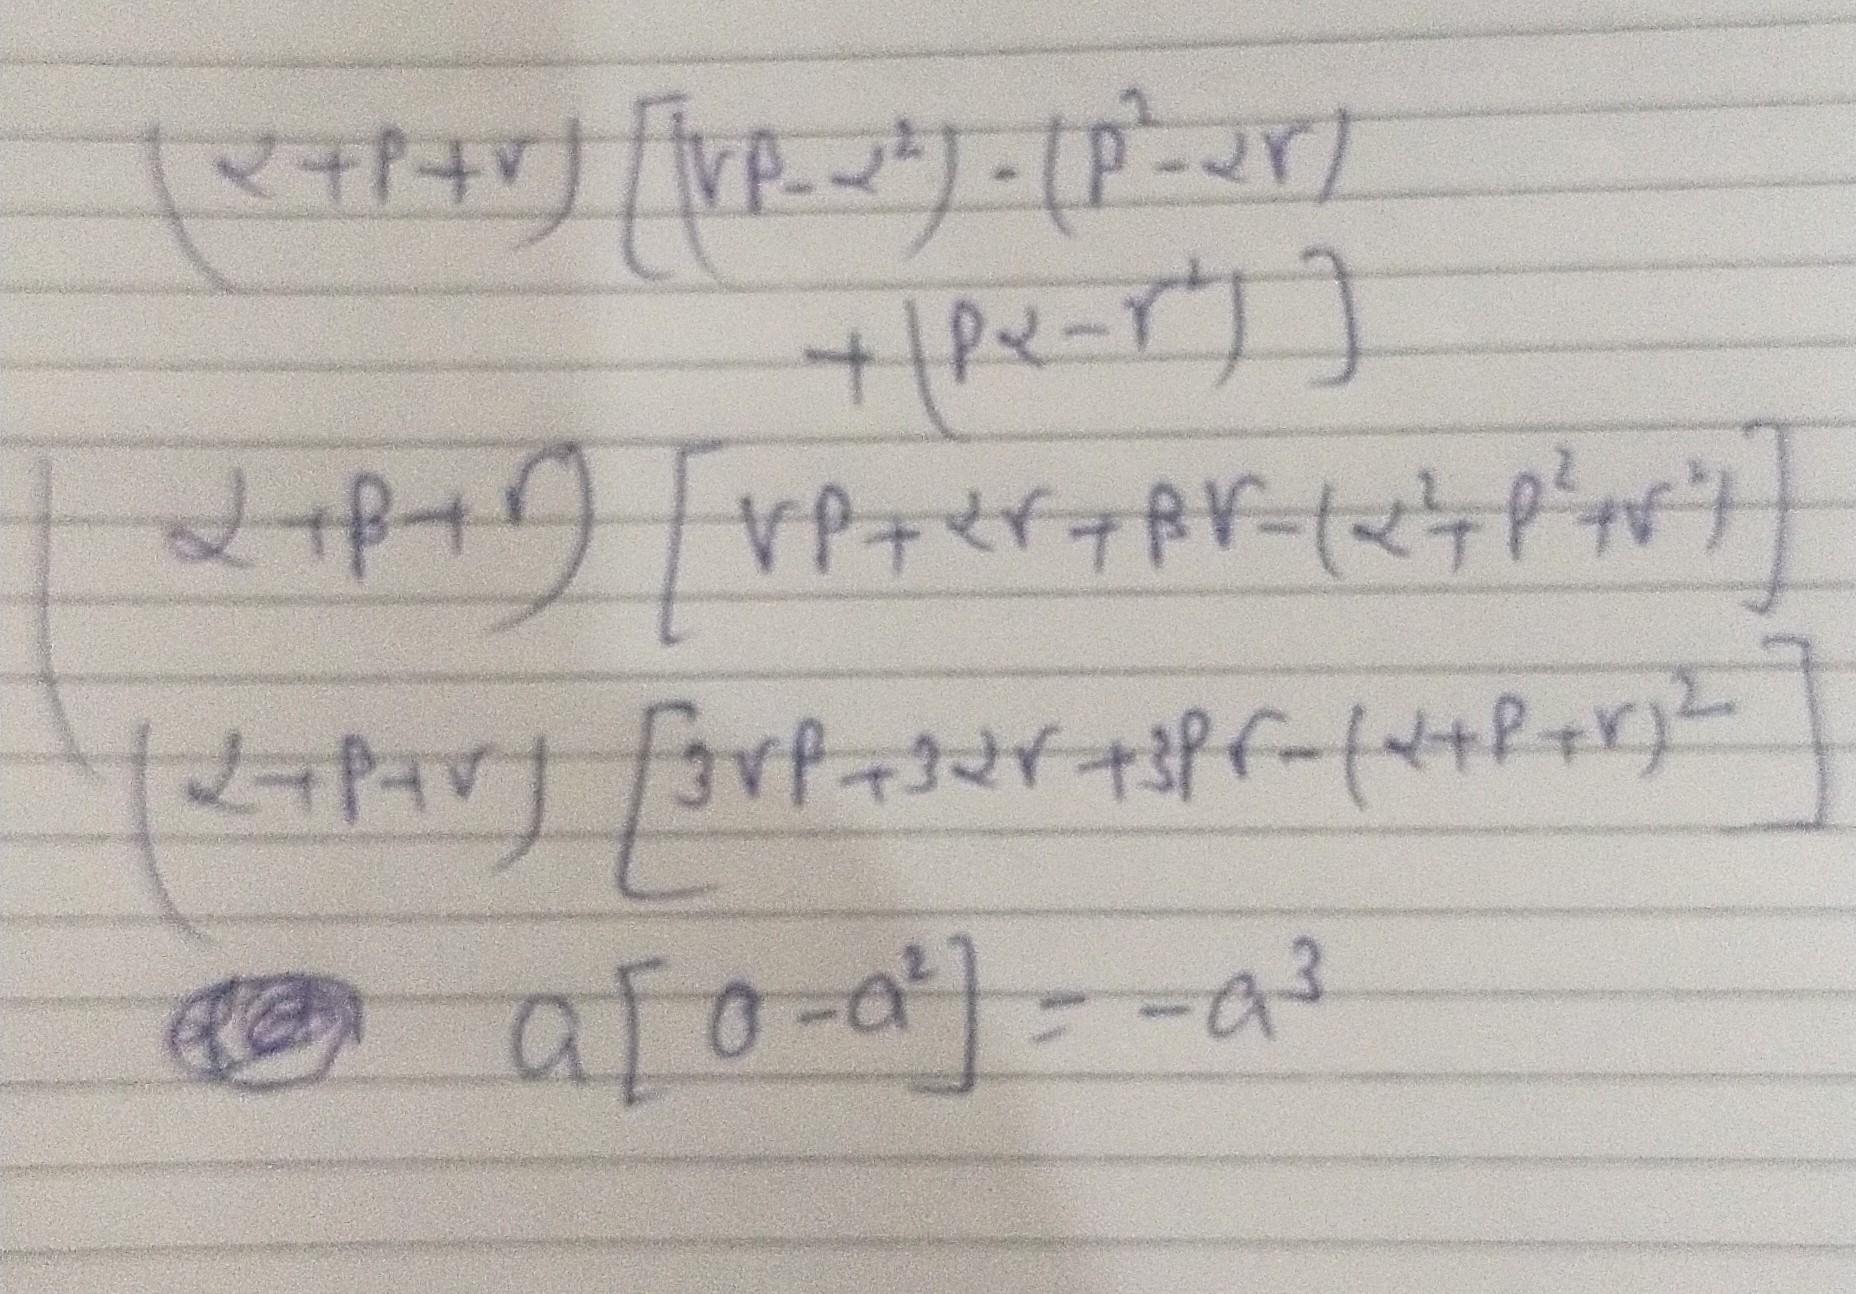 (α+β+γ) [(γβ-α²) - (β²-αγ)
+ (βα-γ²)]
(α+β+γ) [γβ+αγ+βγ-(α²+β²+γ²)]
(α+β+γ) [3γβ+3αγ+3βγ-(α+β+γ)²]
a[0-a²] = -a³